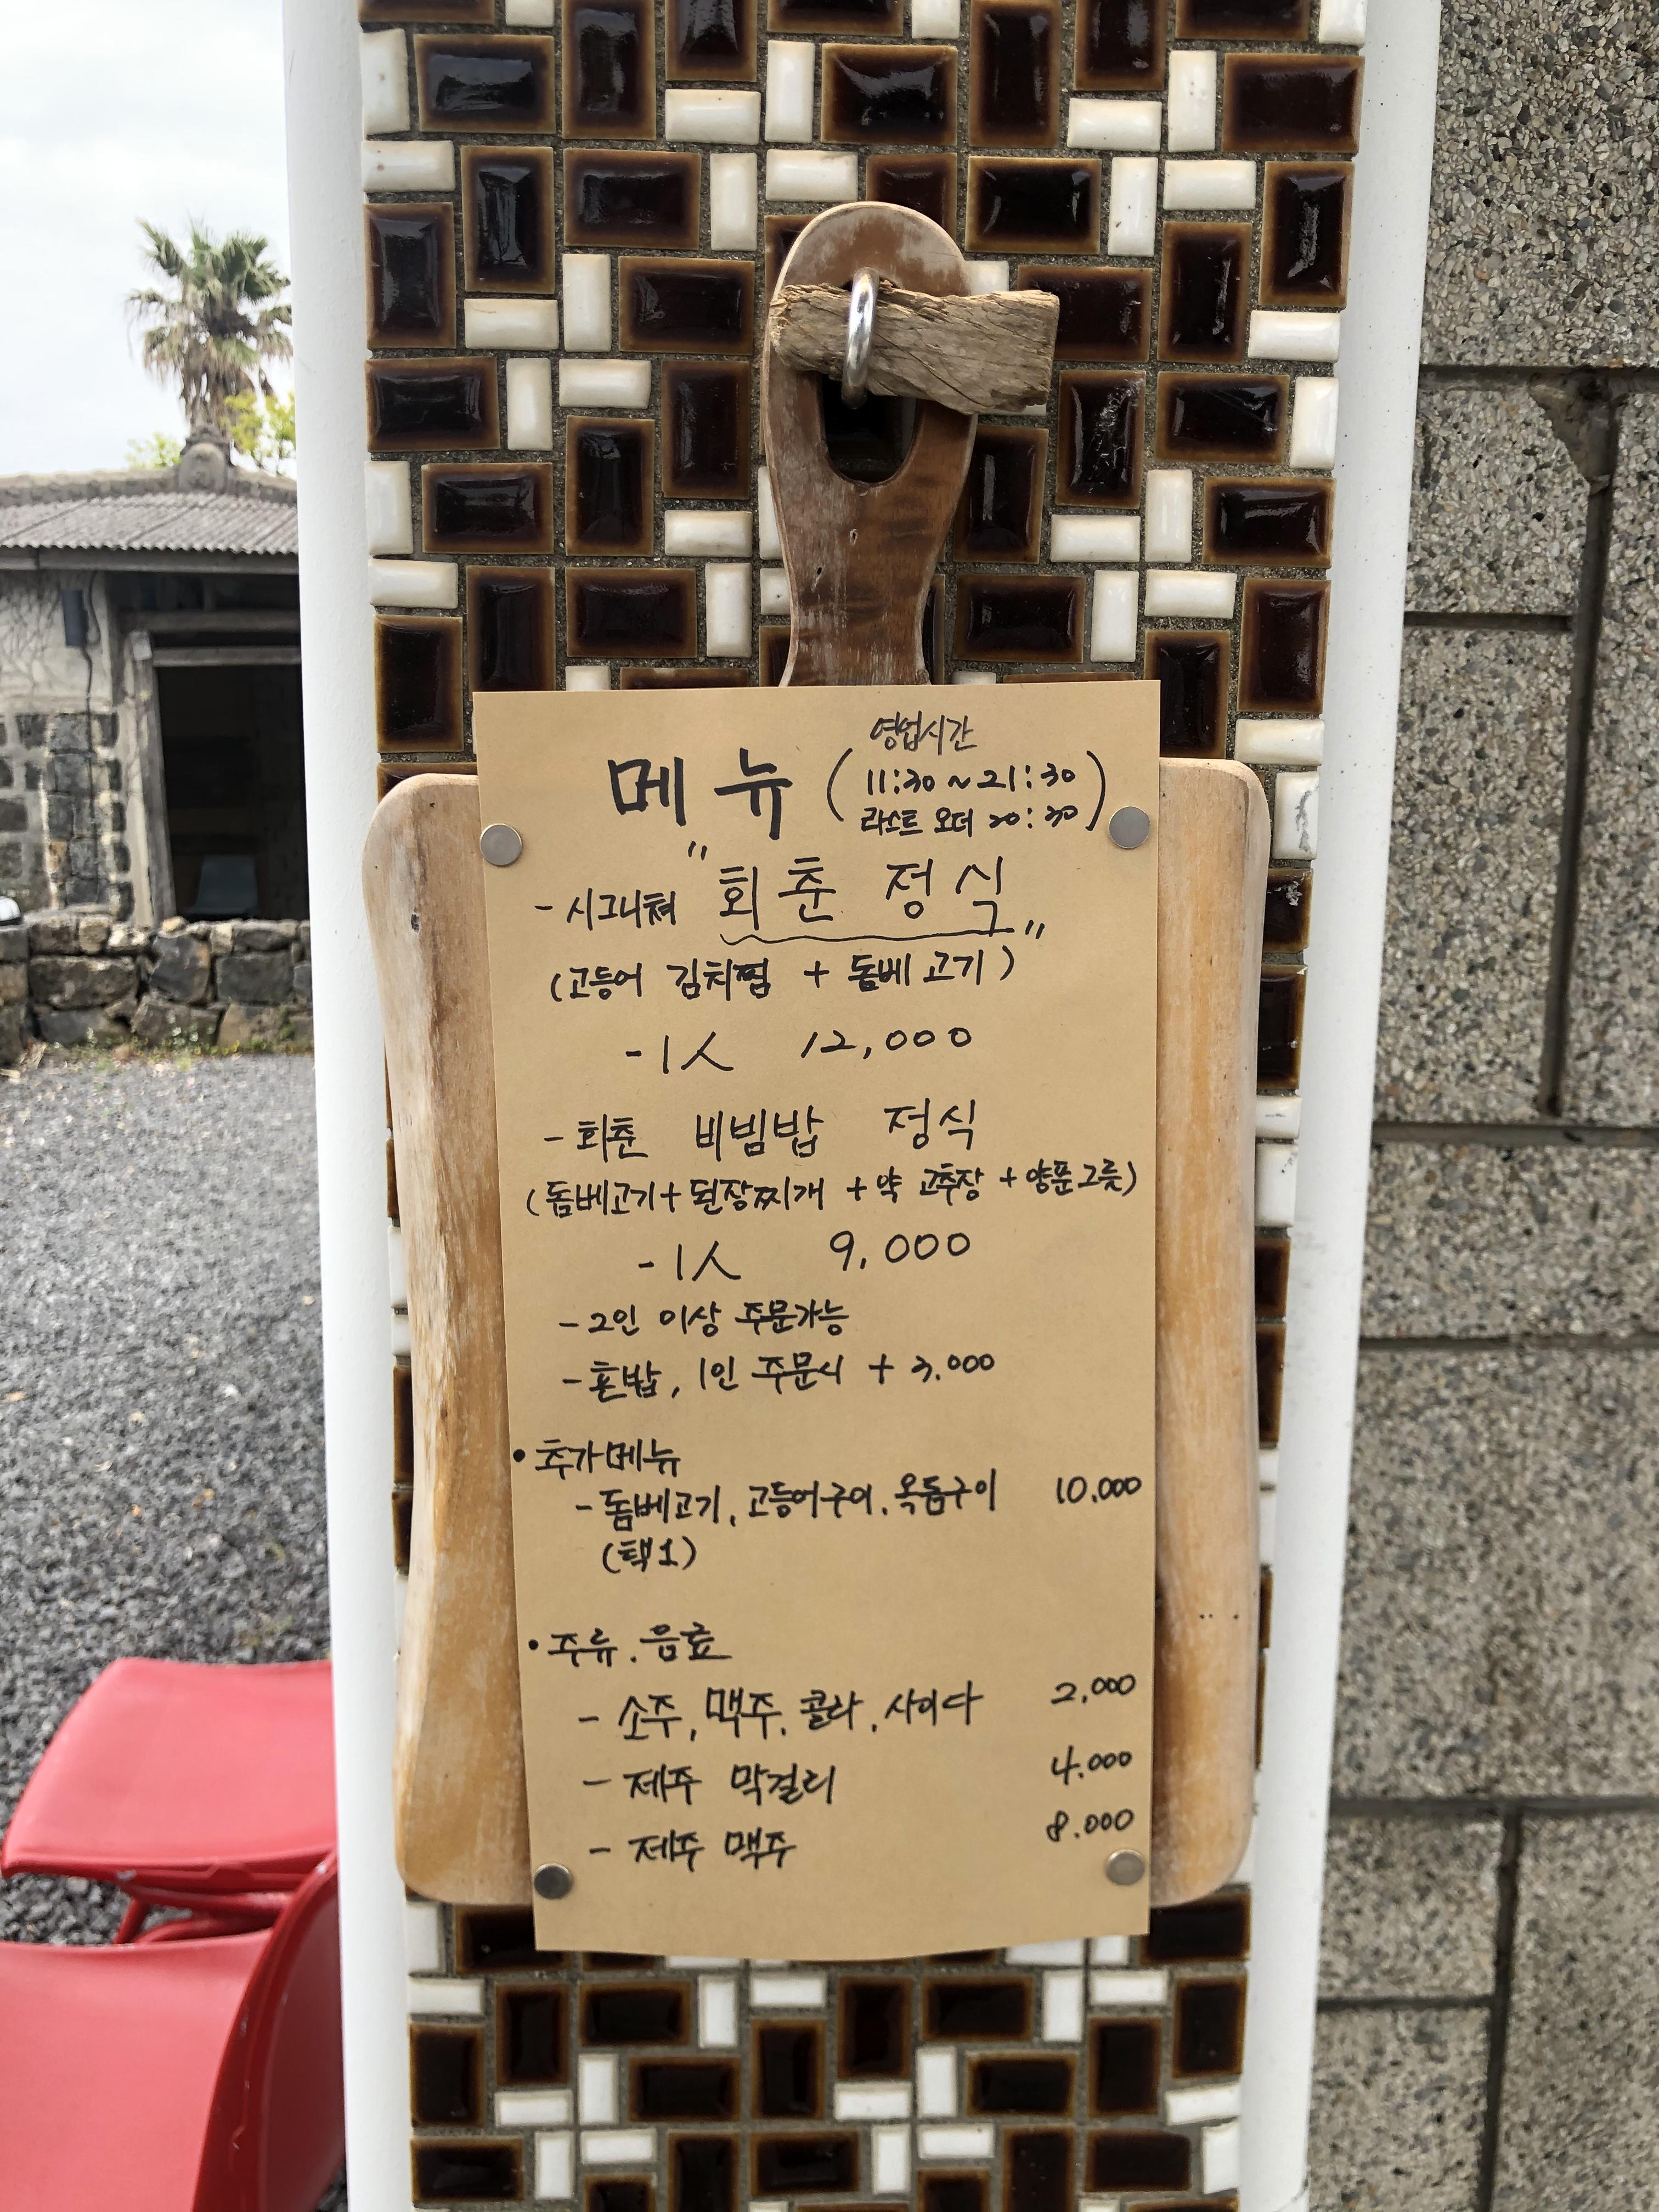 영업시간
메뉴 (11:30 ~ 21:30
라스트 오더 20:30)
- 시그니쳐 "회춘 정식"
(고등어 김치찜 + 돔베고기)
- 1人 12,000
- 회춘 비빔밥 정식
(돔베고기 + 된장찌개 + 약 고추장 + 양푼그릇)
- 1人 9,000
- 2인 이상 주문가능
- 혼밥, 1인 주문시 + 3,000
• 추가메뉴
- 돔베고기, 고등어구이, 옥돔구이 10,000
(택1)
• 주류. 음료
- 소주, 맥주, 콜라, 사이다 2,000
- 제주 막걸리 4,000
- 제주 맥주 8,000